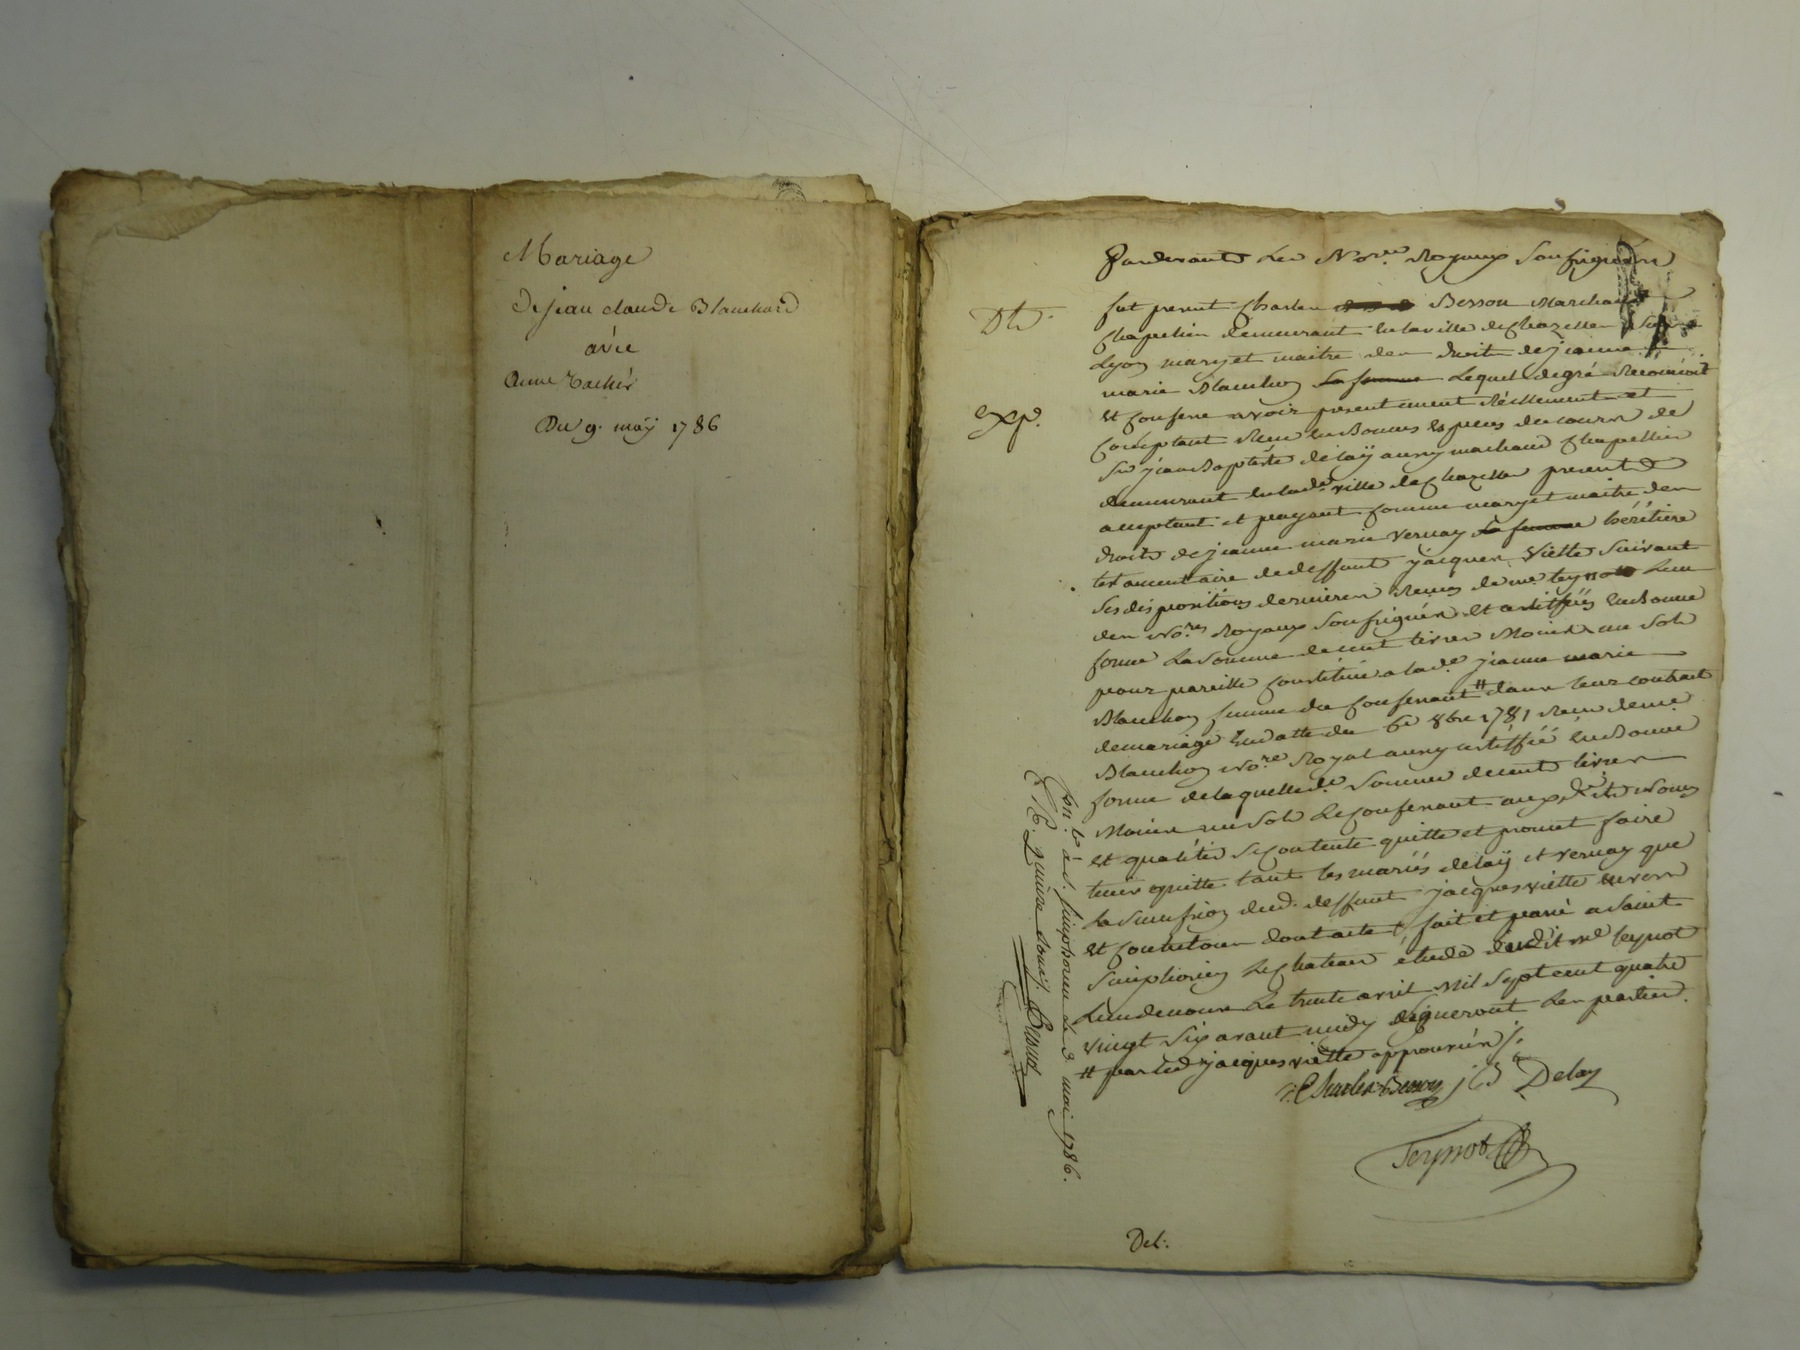 Mariage
De jean claude Blanchard
avéc
Anne
Du 9. maÿ 1786
Pardevant Les No.res Royaux Soussignéz
Dh.
fut present Charles Besson Marchand
Chapellier demeurant en la ville de Chazelles Sur
Lyon mary et maitre des droits de jeanne
marie Blanchon La femme Lequel de gré Reconnoit
exp.
et Confesse avoir presentement Réellement et
Comptant Reçu en Bonnes Especes du cours de
Sr jean Baptiste delaÿ aussy marchand Chapellier
demeurant en lad.e ville de Chazelles present
acceptant et payant Comme mary et maitre des
droits de jeanne marie Vernay Sa femme héritiere
testamentaire de deffunt jacques Viette Suivant
Ses dispositions dernieres Reçues de me teynot L'un
des No.res Royaux Soussignés et certiffiés En Bonne
forme La Somme de cent livres Moins un Sol
pour pareille Constituée a lad.e jeanne marie
Blanchon femme du Confessant # dans leur contract
de mariage En datte du 6e 8bre 1781 Reçu de me
Blanchon No.re Royal aussy certiffié En Bonne
forme de laquelle d.e Somme de cent livres
Moins un Sol Le Confessant aux d.ts Noms
et qualités Se Contente quitte et promet faire
tenir quitte tant les mariés delaÿ et Vernay que
La Succession dud. deffunt jacques viette Envers
et Contre tous dont acte fait et passé a Saint
Simphorien Le Chateau étude dudit me teynot
L'un de nous Le trente avril Mil Sept cent quatre
vingt Six avant midy Signeront Les parties.
# par led. jacques viette approuvéz /.
Charles Besson j B Delay
Teynot
Del:
Con.lé à S. simphorien le 3 mai 1786.
R. quinze sous